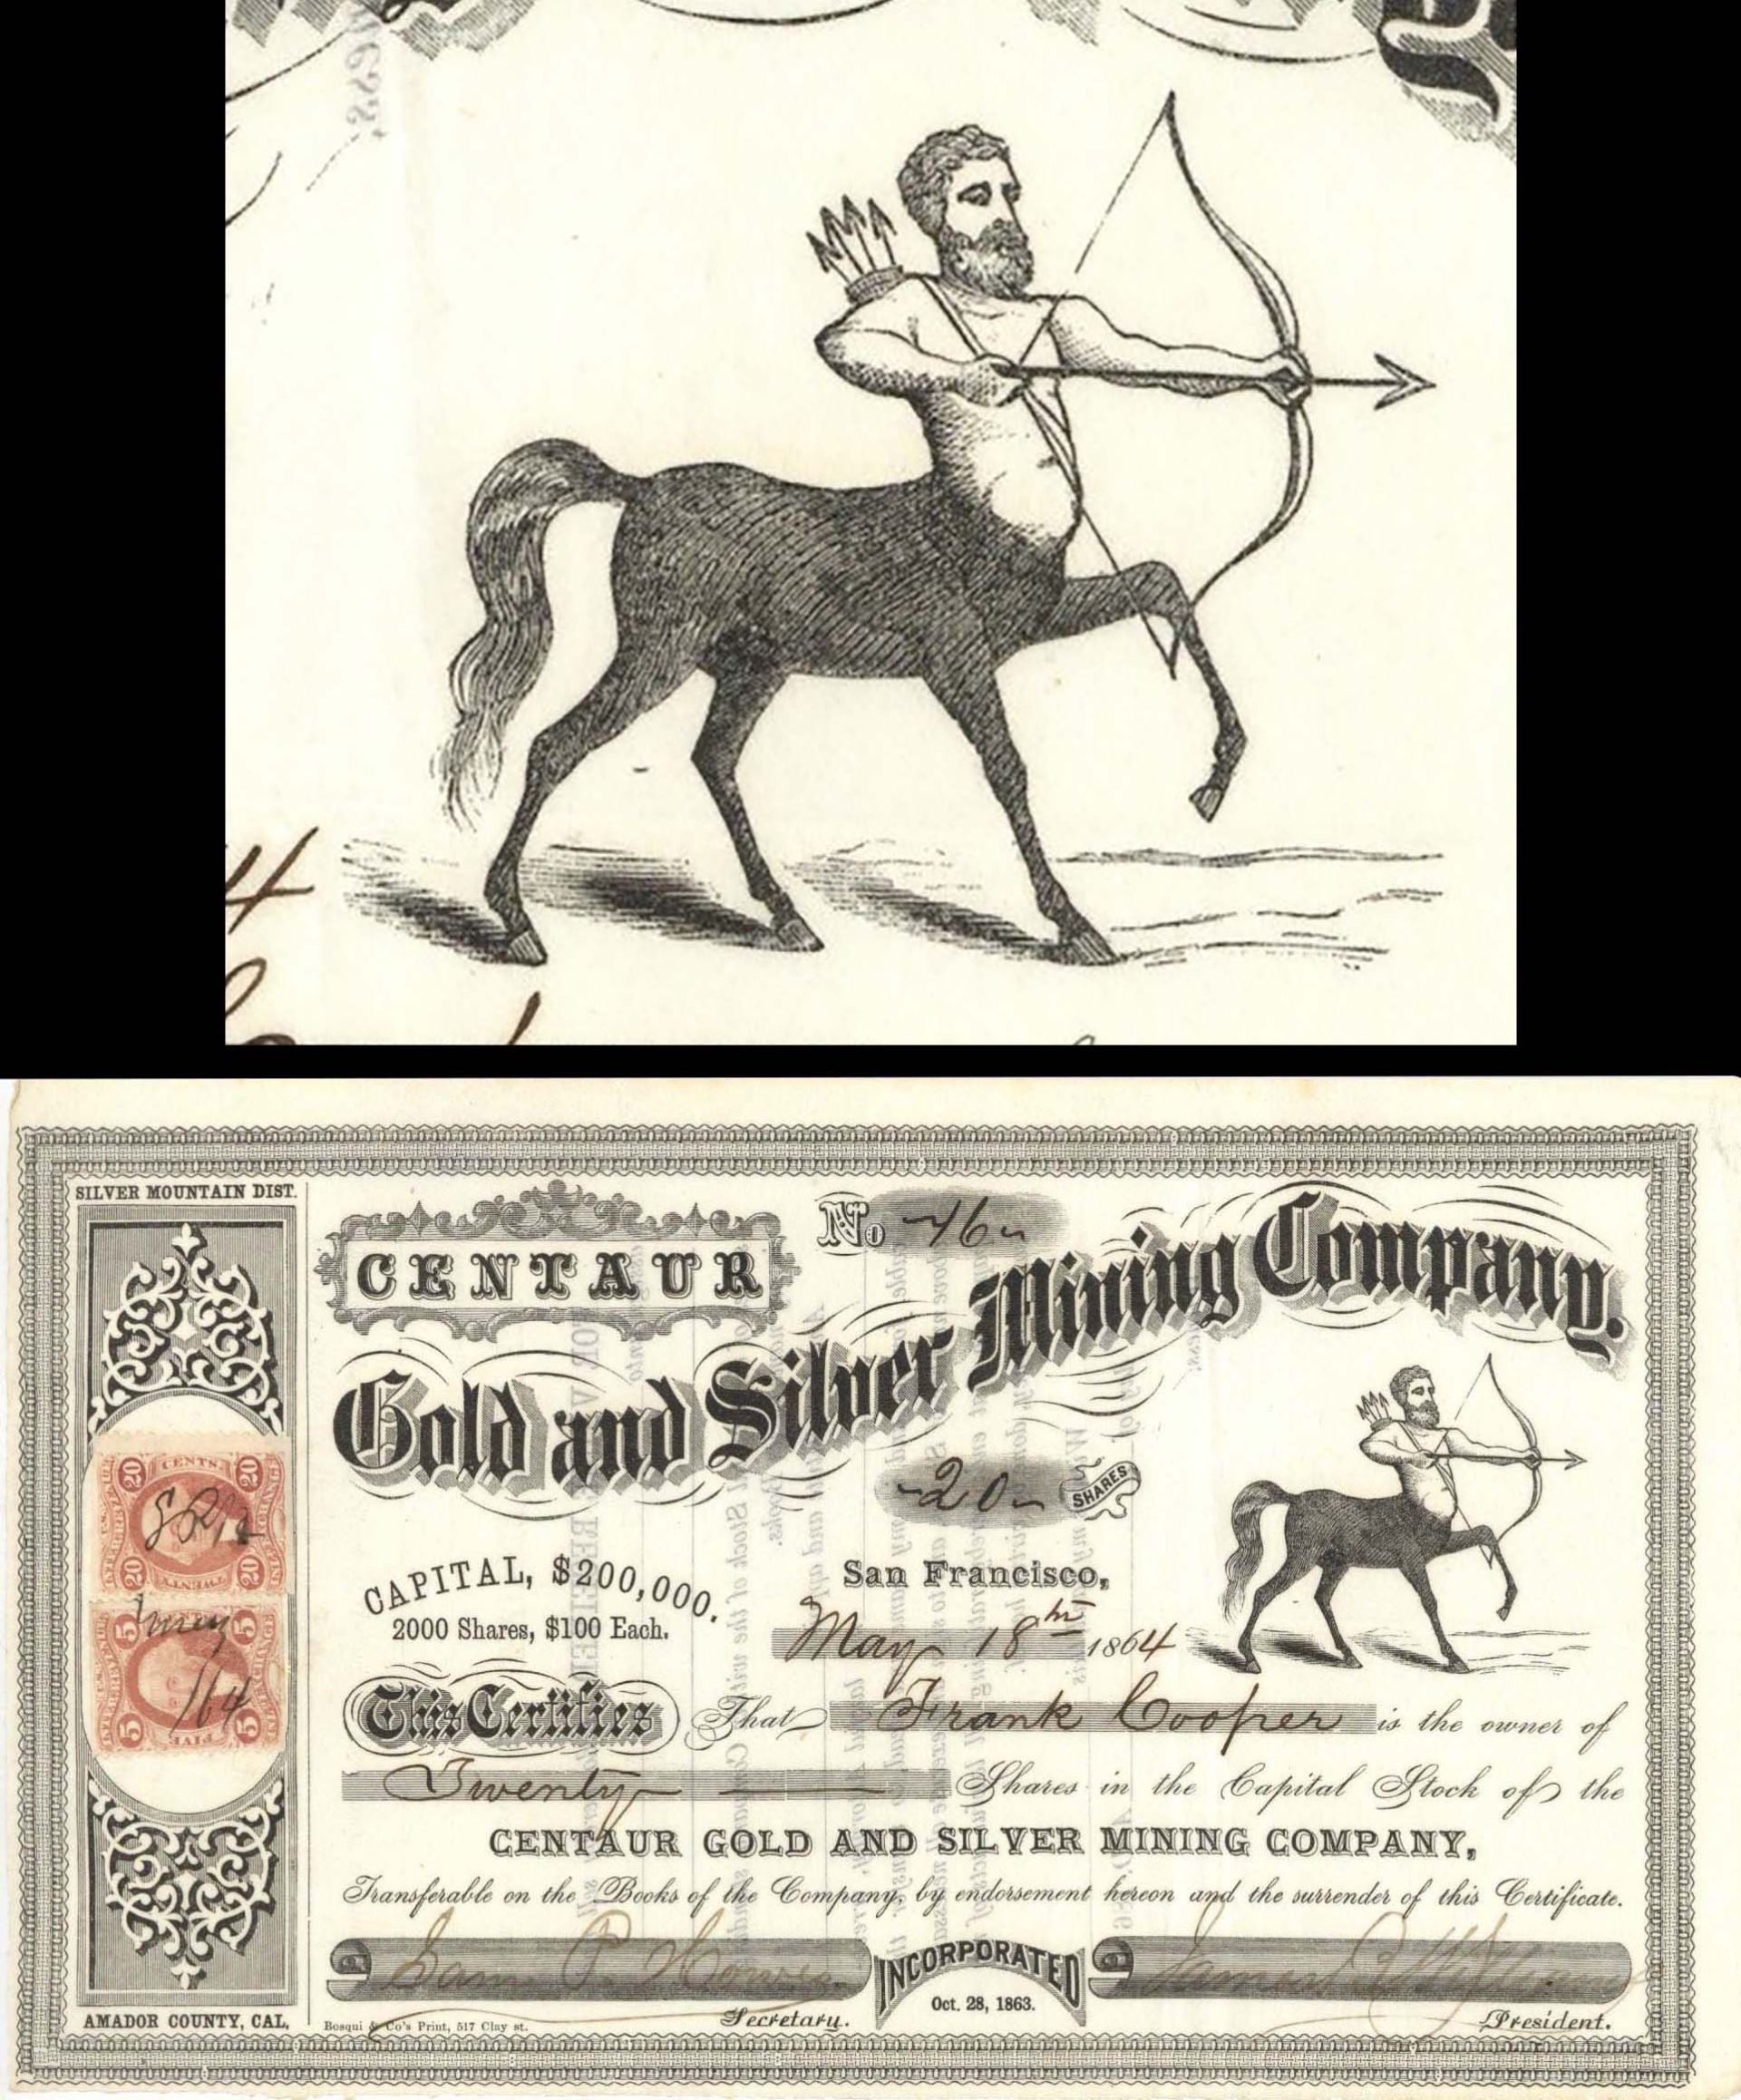 4
SILVER MOUNTAIN DIST.
CENTAUR
No 46
Gold and Silver Mining Company.
20 SHARES
CAPITAL, $200,000.
2000 Shares, $100 Each.
San Francisco,
May 18th 1864
20 CENTS 20
20 TWENTY 20
U.S. INTER. REV. INTR. EXCHANGE
May
5 5
/64
5 FIVE 5
U.S. INTER. REV. INTR. EXCHANGE
This Certifies That Frank Cooper is the owner of
Twenty Shares in the Capital Stock of the
CENTAUR GOLD AND SILVER MINING COMPANY,
Transferable on the Books of the Company, by endorsement hereon and the surrender of this Certificate.
INCORPORATED
Oct. 28, 1863.
Secretary.
President.
AMADOR COUNTY, CAL.
Bosqui & Co's Print, 517 Clay st.